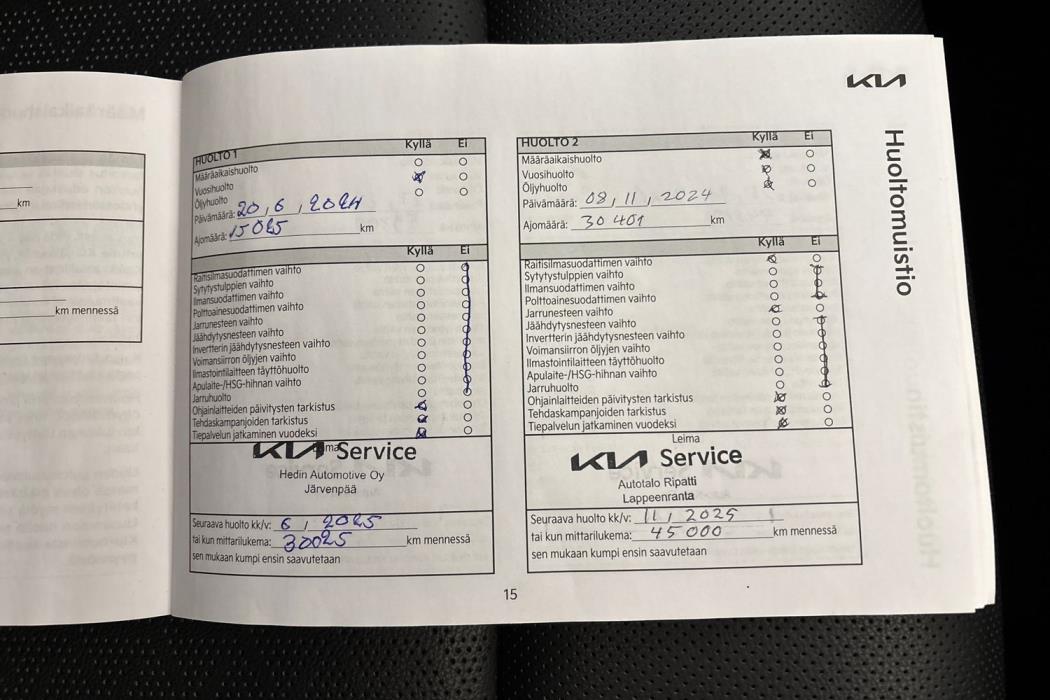 km
km mennessä
KIA
Huoltomuistio
HUOLTO 1 Kyllä Ei
Määräaikaishuolto
Vuosihuolto
Öljyhuolto
Päivämäärä: 20, 6, 2024
Ajomäärä: 15025 km
Kyllä Ei
Raitisilmasuodattimen vaihto
Sytytystulppien vaihto
Ilmansuodattimen vaihto
Polttoainesuodattimen vaihto
Jarrunesteen vaihto
Jäähdytysnesteen vaihto
Invertterin jäähdytysnesteen vaihto
Voimansiirron öljyjen vaihto
Ilmastointilaitteen täyttöhuolto
Apulaite-/HSG-hihnan vaihto
Jarruhuolto
Ohjainlaitteiden päivitysten tarkistus
Tehdaskampanjoiden tarkistus
Tiepalvelun jatkaminen vuodeksi
Leima
KIA Service
Hedin Automotive Oy
Järvenpää
Seuraava huolto kk/v: 6 / 2025
tai kun mittarilukema: 30025 km mennessä
sen mukaan kumpi ensin saavutetaan
HUOLTO 2 Kyllä Ei
Määräaikaishuolto
Vuosihuolto
Öljyhuolto
Päivämäärä: 08, 11, 2024
Ajomäärä: 30 401 km
Kyllä Ei
Raitisilmasuodattimen vaihto
Sytytystulppien vaihto
Ilmansuodattimen vaihto
Polttoainesuodattimen vaihto
Jarrunesteen vaihto
Jäähdytysnesteen vaihto
Invertterin jäähdytysnesteen vaihto
Voimansiirron öljyjen vaihto
Ilmastointilaitteen täyttöhuolto
Apulaite-/HSG-hihnan vaihto
Jarruhuolto
Ohjainlaitteiden päivitysten tarkistus
Tehdaskampanjoiden tarkistus
Tiepalvelun jatkaminen vuodeksi
Leima
KIA Service
Autotalo Ripatti
Lappeenranta
Seuraava huolto kk/v: 11, 2025
tai kun mittarilukema: 45 000 km mennessä
sen mukaan kumpi ensin saavutetaan
15